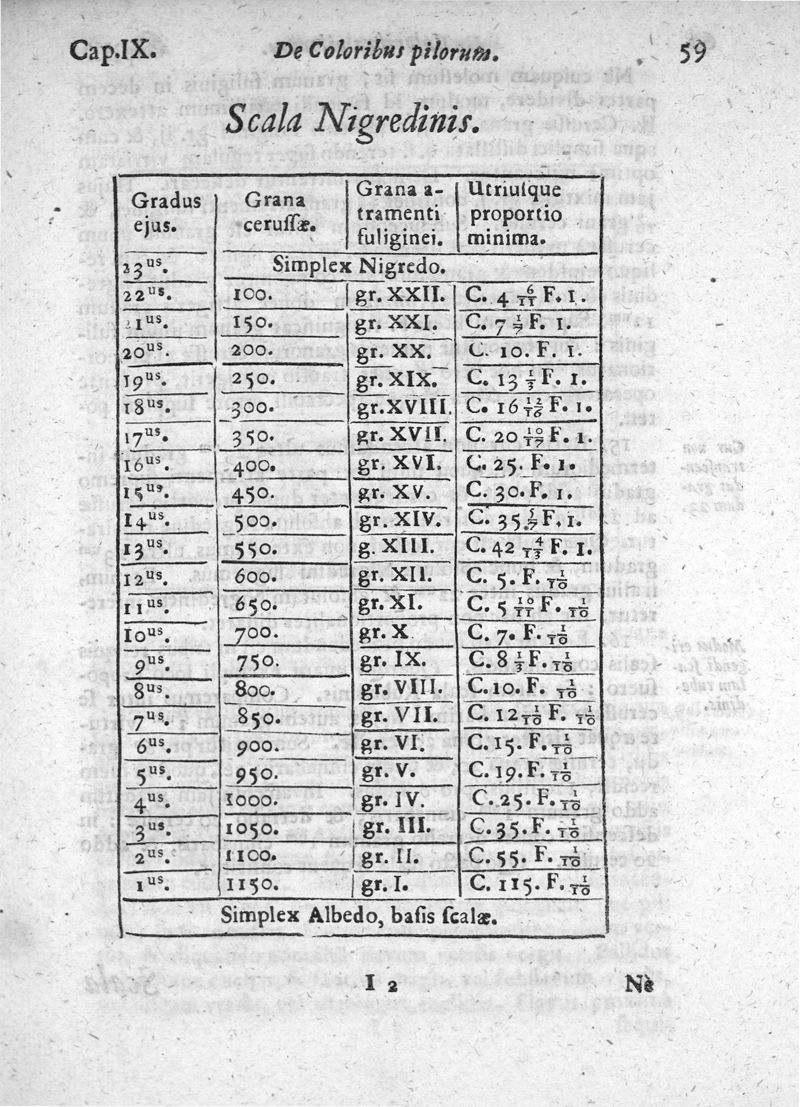 Cap.IX. De Coloribus pilorum. 59
Scala Nigredinis.
Gradus ejus. | Grana cerussæ. | Grana a-tramenti fuliginei. | Utriusque proportio minima.
23us. | Simplex Nigredo.
22us. | 100. | gr. XXII. | C. 4 6/11 F. 1.
21us. | 150. | gr. XXI. | C. 7 1/7 F. 1.
20us. | 200. | gr. XX. | C. 10. F. 1.
19us. | 250. | gr. XIX. | C. 13 1/3 F. 1.
18us. | 300. | gr. XVIII. | C. 16 12/16 F. 1.
17us. | 350. | gr. XVII. | C. 20 10/17 F. 1.
16us. | 400. | gr. XVI. | C. 25. F. 1.
15us. | 450. | gr. XV. | C. 30. F. 1.
14us. | 500. | gr. XIV. | C. 35 5/7 F. 1.
13us. | 550. | g. XIII. | C. 42 4/13 F. 1.
12us. | 600. | gr. XII. | C. 5. F. 1/10
11us. | 650. | gr. XI. | C. 5 10/11 F. 1/10
10us. | 700. | gr. X | C. 7. F. 1/10
9us | 750. | gr. IX. | C. 8 1/3 F. 1/10
8us. | 800. | gr. VIII. | C. 10. F. 1/10
7us. | 850. | gr. VII. | C. 12 1/10 F. 1/10
6us. | 900. | gr. VI. | C. 15. F. 1/10
5us | 950. | gr. V. | C. 19. F. 1/10
4us. | 1000. | gr. IV. | C. 25. F. 1/10
3us. | 1050. | gr. III. | C. 35. F. 1/10
2us. | 1100. | gr. II. | C. 55. F. 1/10
1us. | 1150. | gr. I. | C. 115. F. 1/10
Simplex Albedo, basis scalæ.
I 2 Nè